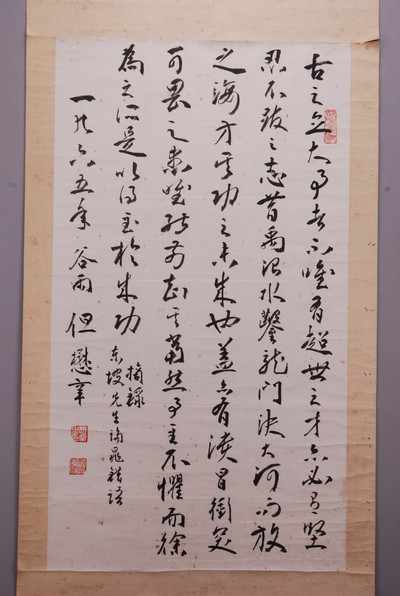 古之立大事者不唯有超世之才亦必有堅
忍不拔之志昔禹治水鑿龍門決大河而放
之海方其功之未成也蓋亦有潰冒衝突
可畏之患唯能前知其當然事至不懼而徐
為之所是以得至於成功
摘錄
东坡先生論晁錯語
一九六五年谷雨但懋辛